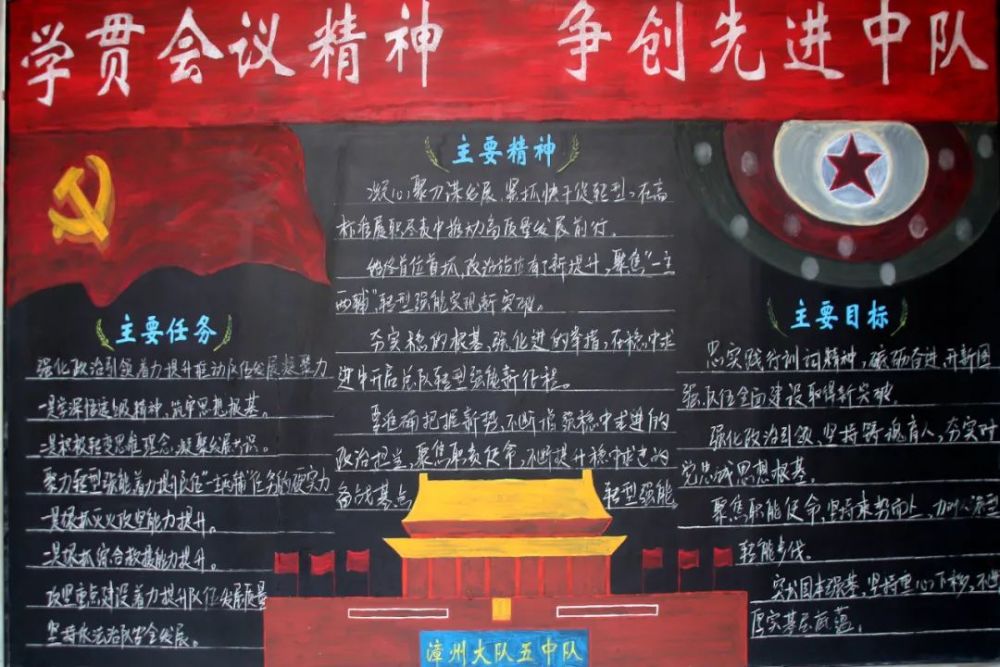 学贯会议精神 争创先进中队
主要精神
凝心聚力谋发展、紧抓快干促转型,在高
标准履职尽责中推动高质量发展前行。
始终首位首抓,政治能力有了新提升,聚焦“一主
两辅”,转型强能实现新突破。
夯实稳的根基、强化进的举措,在稳中求
进中开启总队转型强能新征程。
要准确把握新形势,不断 稳中求进的
政治担当,聚焦职责使命,不断提升稳中求进的
备战基点 转型强能。
主要任务
强化政治引领着力提升推动队伍发展凝聚力
一是学深悟透上级精神、筑牢思想根基。
二是积极转变思维理念,凝聚发展共识。
聚力转型强能着力提升队伍“一主两辅”任务的硬实力
一是狠抓灭火攻坚能力提升。
二是狠抓综合救援能力提升。
攻坚重点建设着力提升队伍发展质量
坚持依法治队安全发展。
主要目标
忠实践行训词精神,砥砺奋进,开新图
强,队伍全面建设取得新突破。
强化政治引领、坚持铸魂育人,夯实对
党忠诚思想根基。
聚焦职能使命,坚持乘势而上,加快转型
轻能步伐。
突出固本强基,坚持重心下移,不断
厚实基层底蕴。
漳州大队五中队